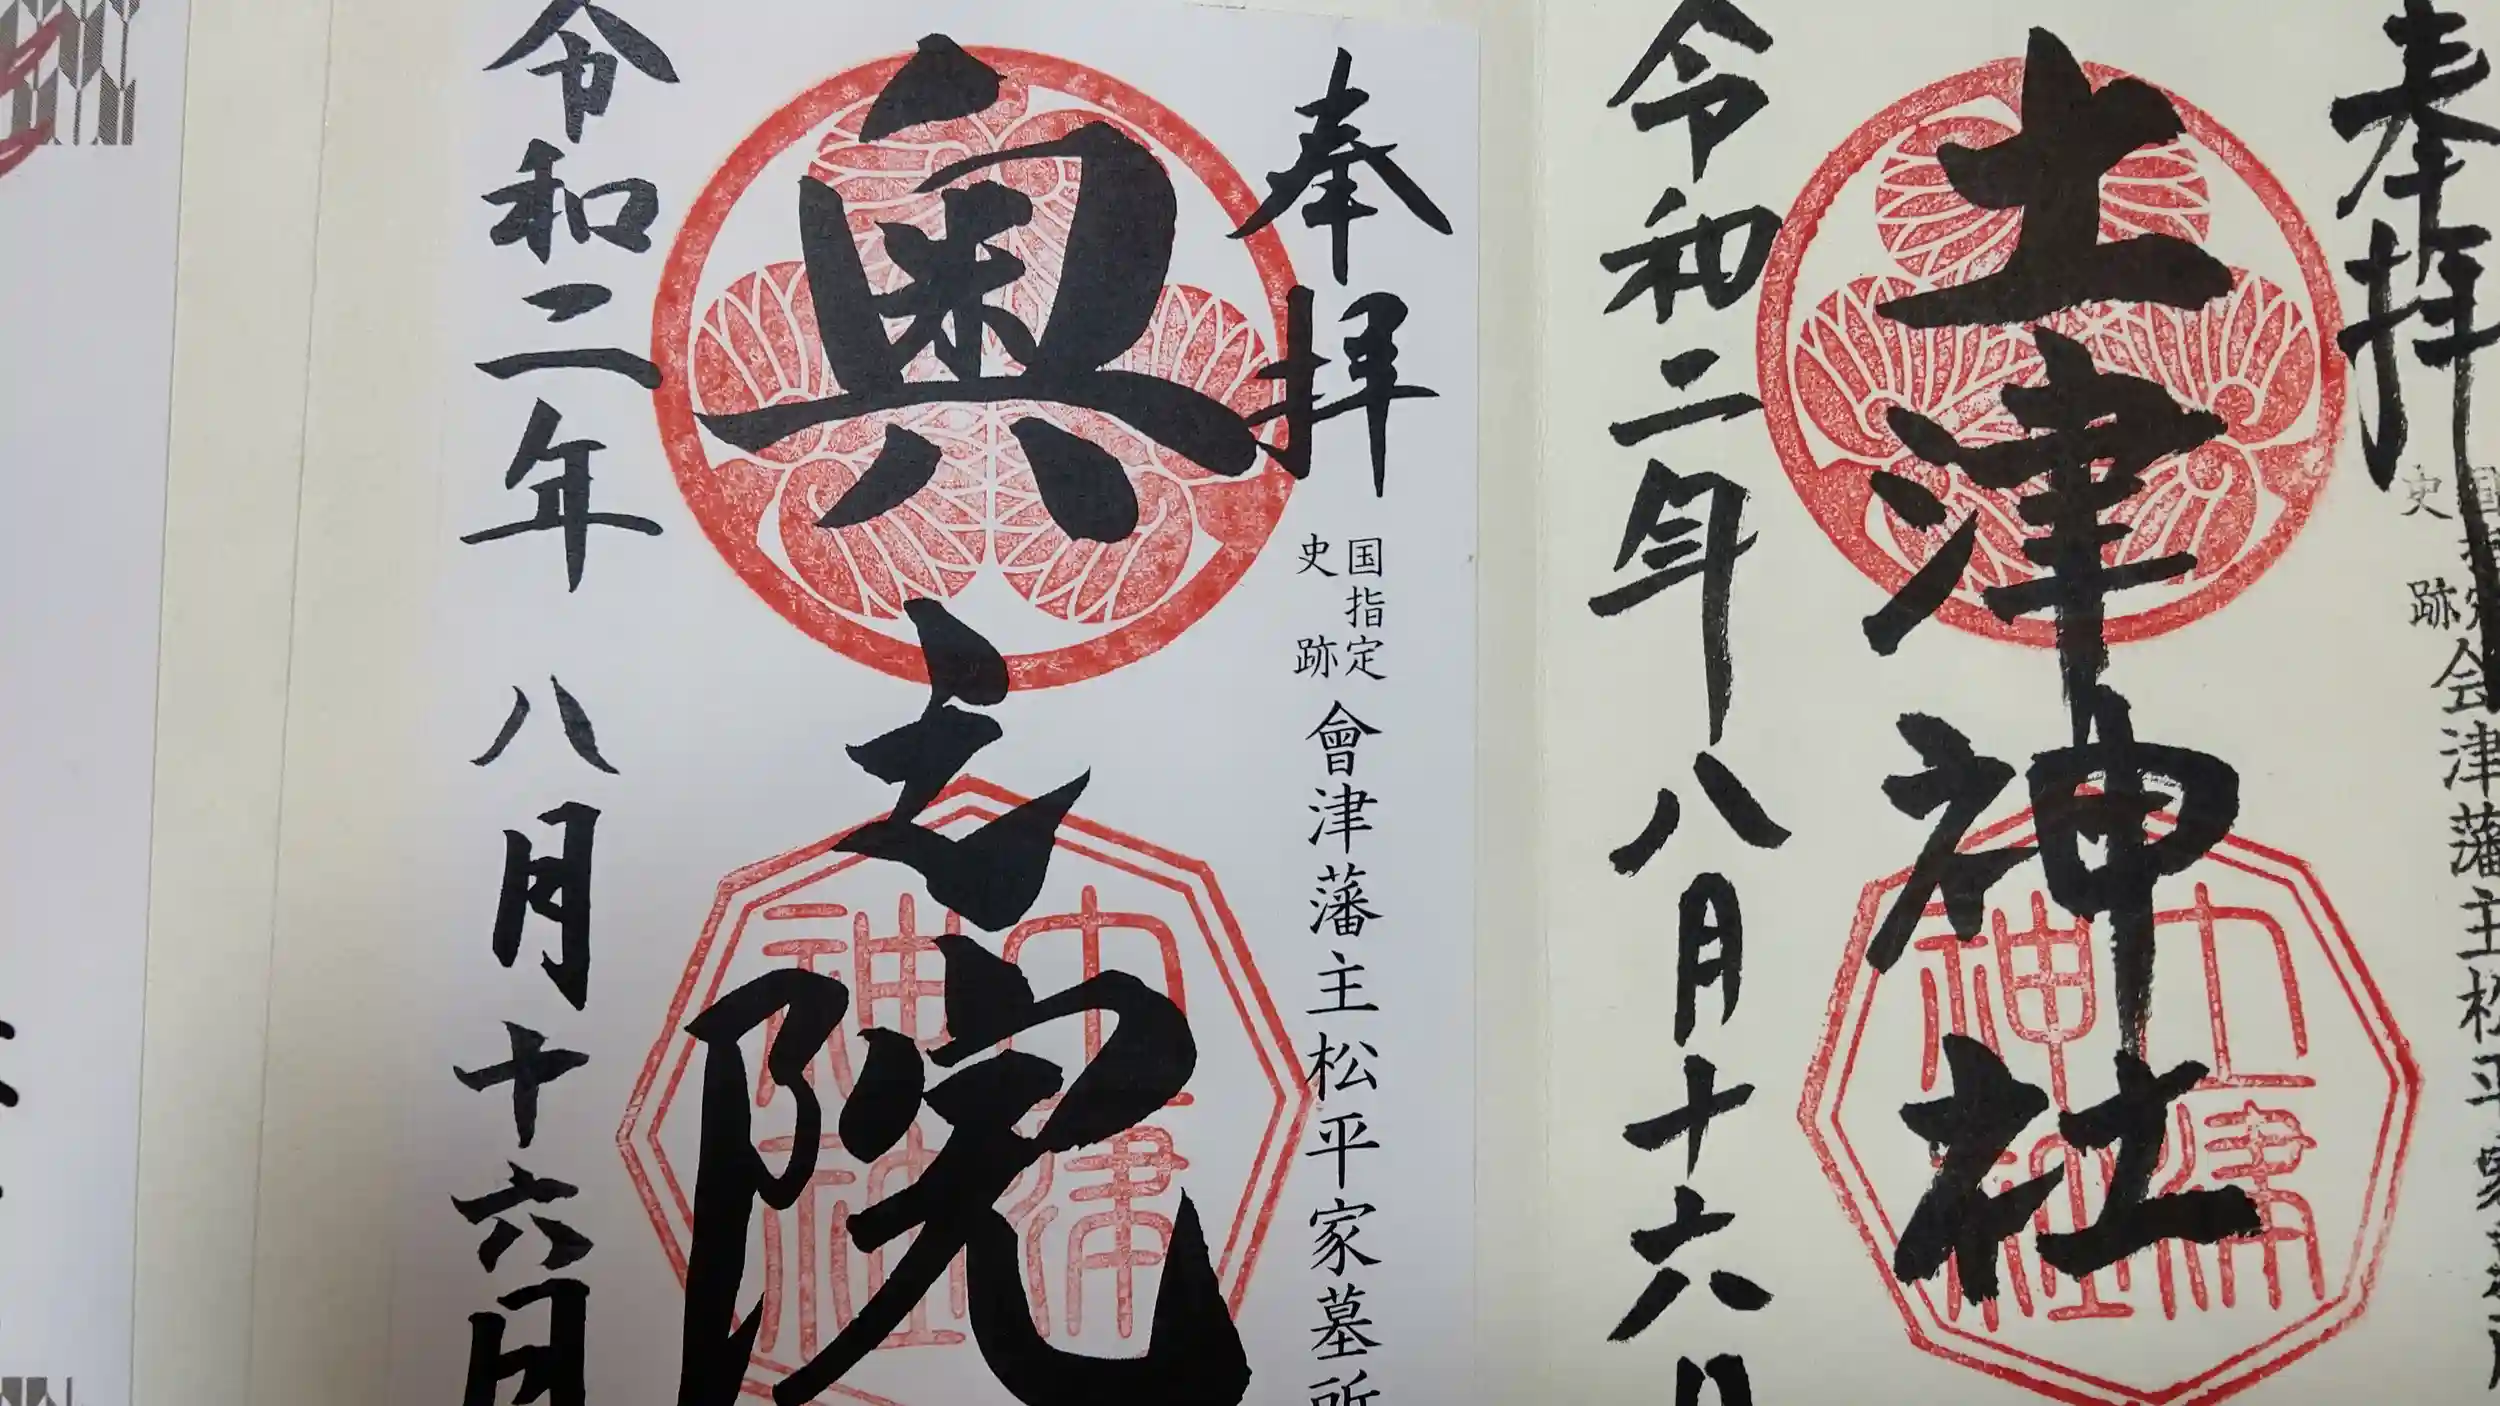 奉拝
国指定
史跡
会津藩主松平家墓所
土津神社
土津
神社
令和二年八月十六日
奉拝
国指定
史跡
會津藩主松平家墓所
奥之院
土津
神社
令和二年八月十六日